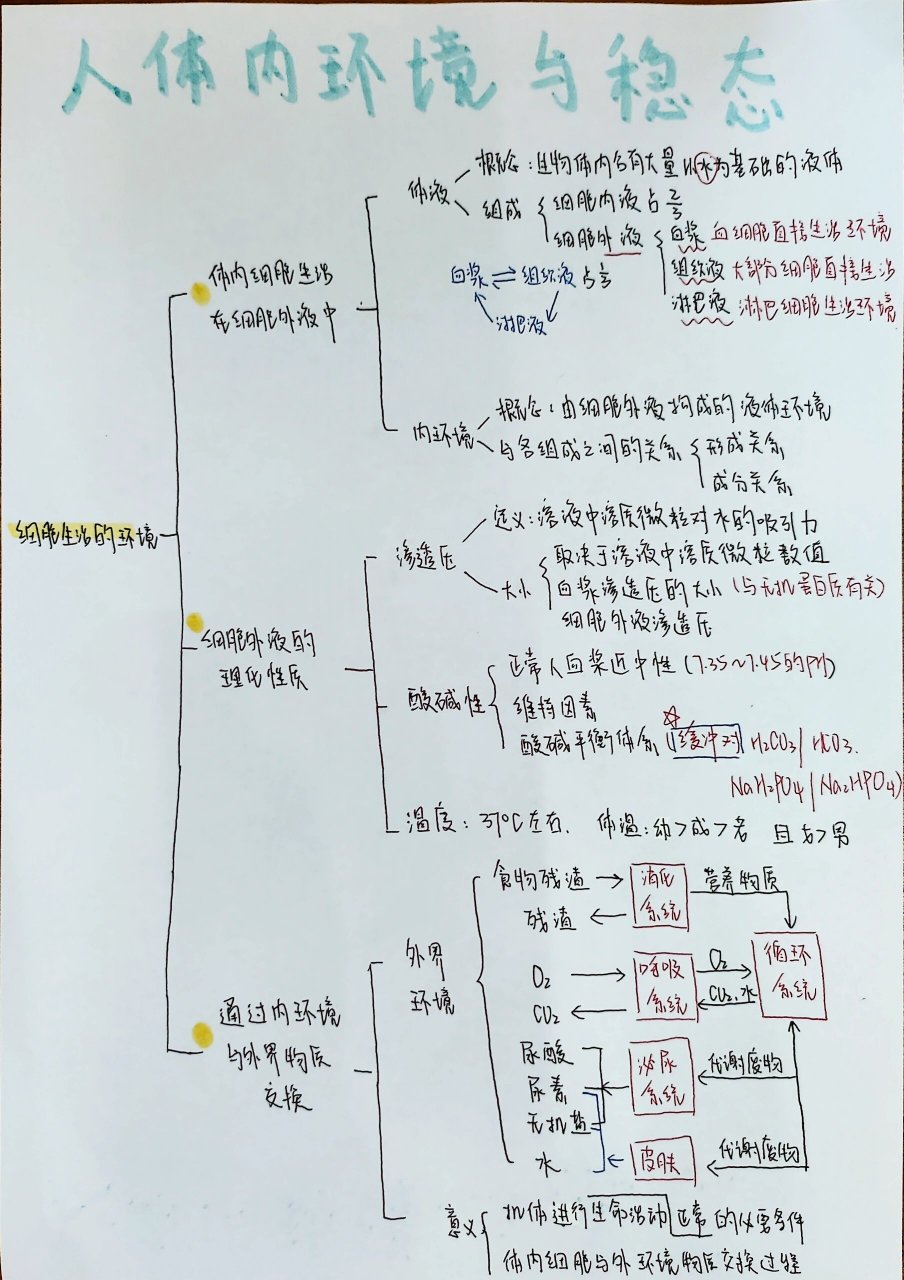 人体内环境与稳态
体液
概念：生物体内含有大量以水为基础的液体
组成
细胞内液占2/3
细胞外液
血浆 血细胞直接生活环境
组织液 大部分细胞直接生活
淋巴液 淋巴细胞生活环境
血浆 ⇌ 组织液 占1/3
淋巴液
体内细胞生活
在细胞外液中
内环境
概念：由细胞外液构成的液体环境
与各组成之间的关系
形成关系
成分关系
细胞生活的环境
渗透压
定义：溶液中溶质微粒对水的吸引力
大小
取决于溶液中溶质微粒数值
血浆渗透压的大小（与无机蛋白质有关）
细胞外液渗透压
细胞外液的
理化性质
酸碱性
正常人血浆近中性（7.35～7.45的PH）
维持因素
酸碱平衡体系（缓冲对 H₂CO₃/HCO₃.
NaH₂PO₄/Na₂HPO₄）
温度：37℃左右. 体温：幼>成>老 且女>男
外界
环境
食物残渣 →
消化
系统
营养物质
残渣 ←
O₂ →
呼吸
系统
O₂
CO₂.水
循环
系统
CO₂ ←
尿酸
尿素
无机盐
水
泌尿
系统
代谢废物
皮肤
代谢废物
通过内环境
与外界物质
交换
意义
机体进行生命活动正常的必要条件
体内细胞与外环境物质交换过程